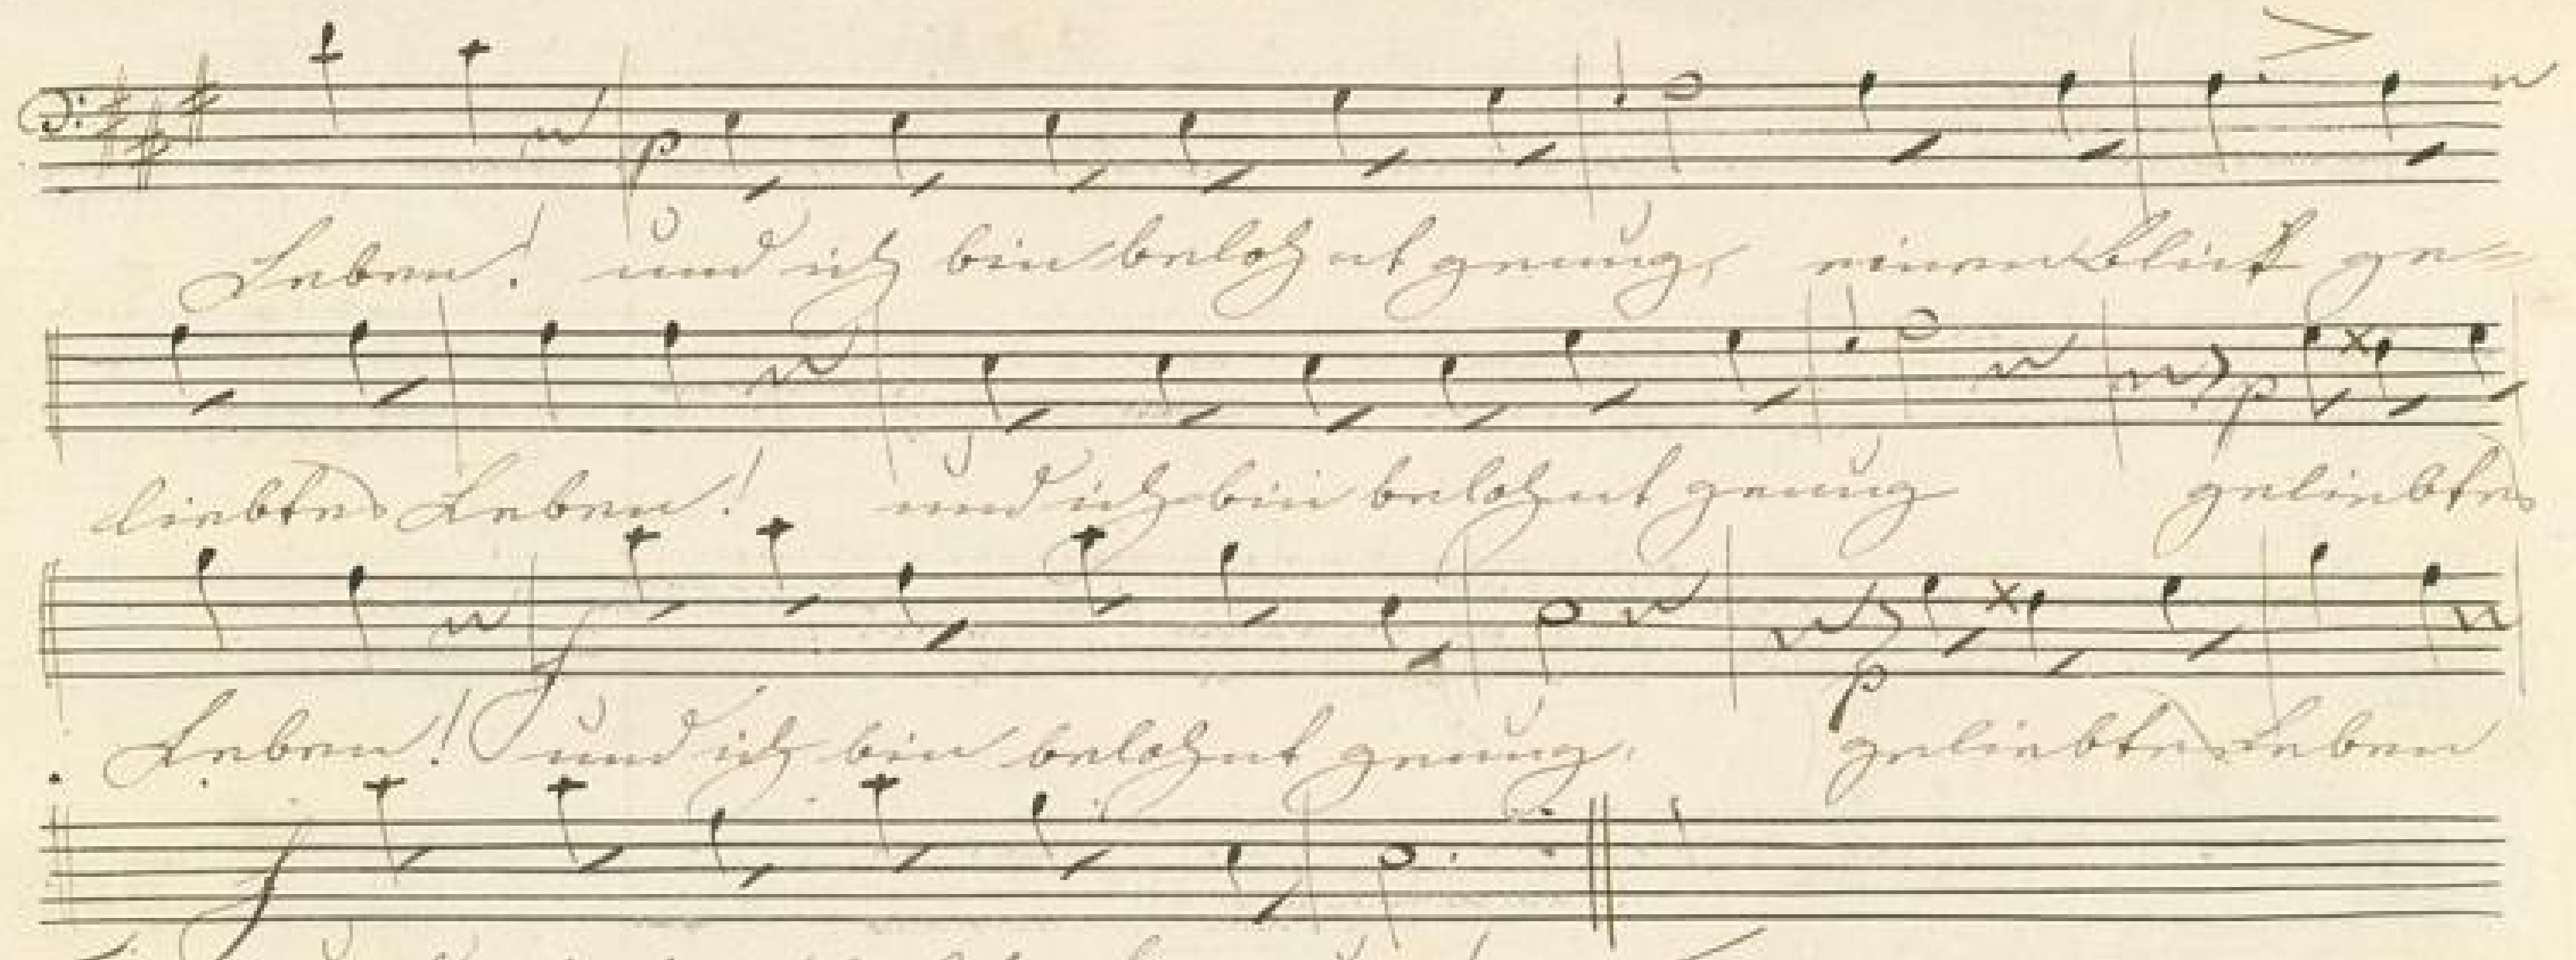 p
Leben! und ich bin belohnt genug, einen Blick ge-
p
liebtes Leben! und ich bin belohnt genug geliebtes
f p
Leben! und ich bin belohnt genug. geliebtes Leben
f